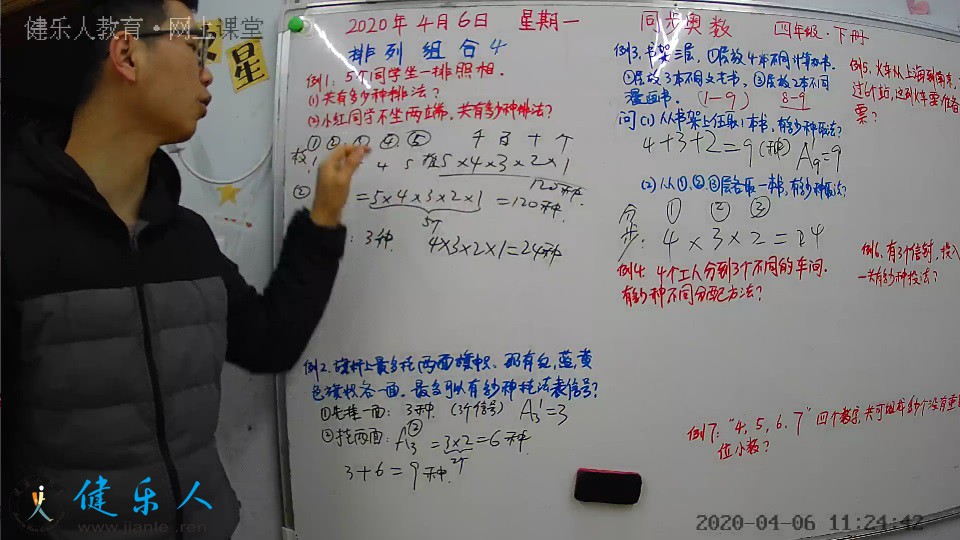 健乐人教育·网上课堂
星
2020年4月6日 星期一 同步奥数 四年级·下册
排列组合4
例1: 5个同学坐一排照相.
(1)共有多少种排法?
(2)小红同学不坐两立端. 共有多少种排法?
① ② ④ ⑤ 千 百 十 个
4 5 5×4×3×2×1
120种
② =5×4×3×2×1 =120种.
5个
: 3种. 4×3×2×1=24种
例2. 旗杆上最多挂两面旗帜. 现有红,蓝,黄
色旗帜各一面. 最多可以有多少种挂法表信号?
①先挂一面: 3种. (3个信号) A₃¹=3
②挂两面: A₃² =3×2=6种.
2个
3+6=9种.
例3. 书架三层, ①层放4本不同计算机书.
②层放3本不同文艺书, ③层放2本不同
书. (1-9) 8-9
问(1) 从书架上任取1本书, 有多少种取法?
4+3+2=9(种) A₉¹=9
(2) 从①,②,③层各取一本书, 有多少种取法?
分 ① ② ③
步: 4×3×2=24
例4: 4个工人分到3个不同的车间.
有多少种不同分配方法?
例5. 火车从上海到南京,
过6个站,
票?
例6. 有3个信封, 投入
一共有多少种投法?
例7: "4, 5, 6, 7" 四个数字, 共可组成多少个没有重
位小数?
健乐人
www.jianle.ren
2020-04-06 11:24:42